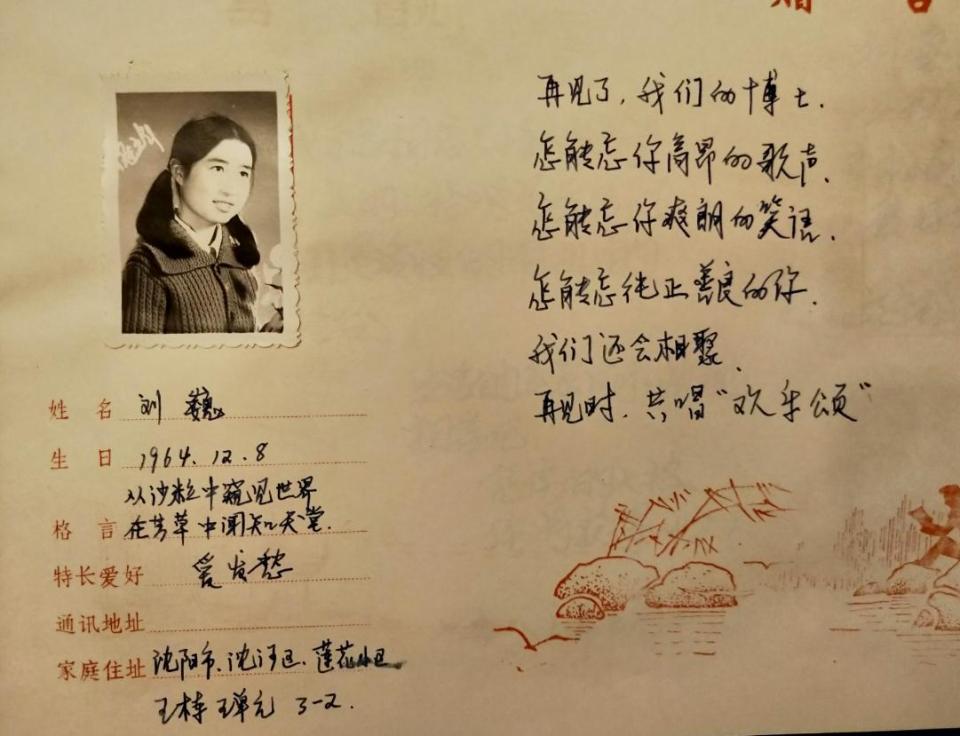 赠言
再见了，我们的博士．
怎能忘你高昂的歌声．
怎能忘你爽朗的笑语．
怎能忘纯正善良的你．
我们还会相聚．
再见时．共唱“欢乐颂”
姓 名 刘巍
生 日 1964.12.8
从沙粒中窥见世界
格 言 在芳草中闻知天堂．
特长爱好 爱发愁
通讯地址
家庭住址 沈阳市．沈河区．莲花小区
3-2．